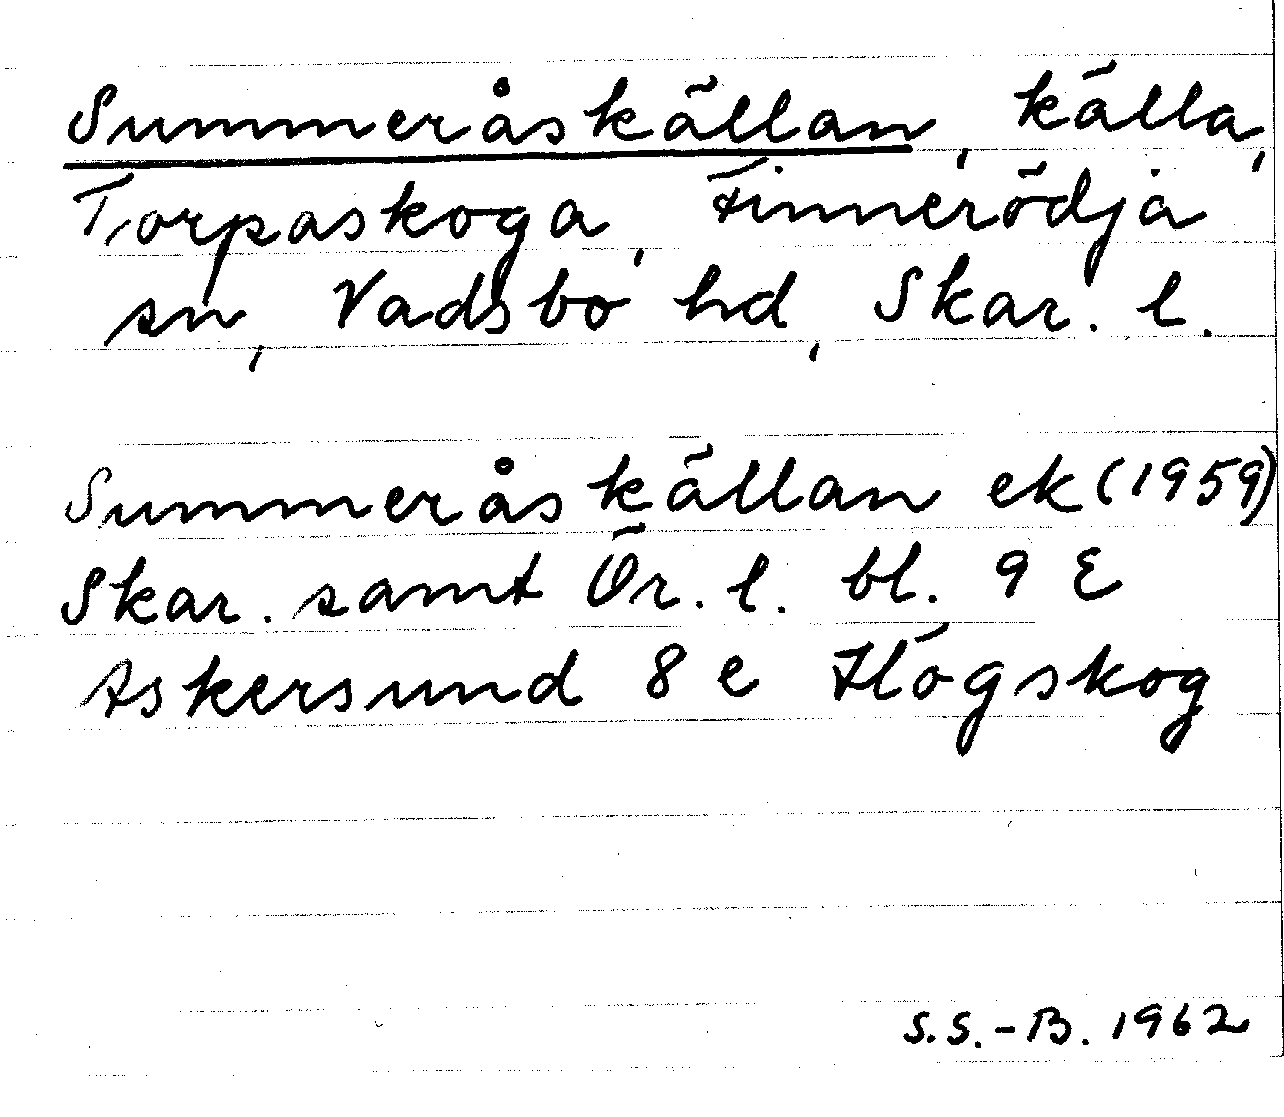 Summeråskällan, källa,
Torpaskoga, Finnerödja
sn, Vadsbo hd, Skar. l.
Summeråskällan ek (1959)
Skar. samt Ör. l. bl. 9 E
Askersund 8 e Högskog
S.S.-B. 1962